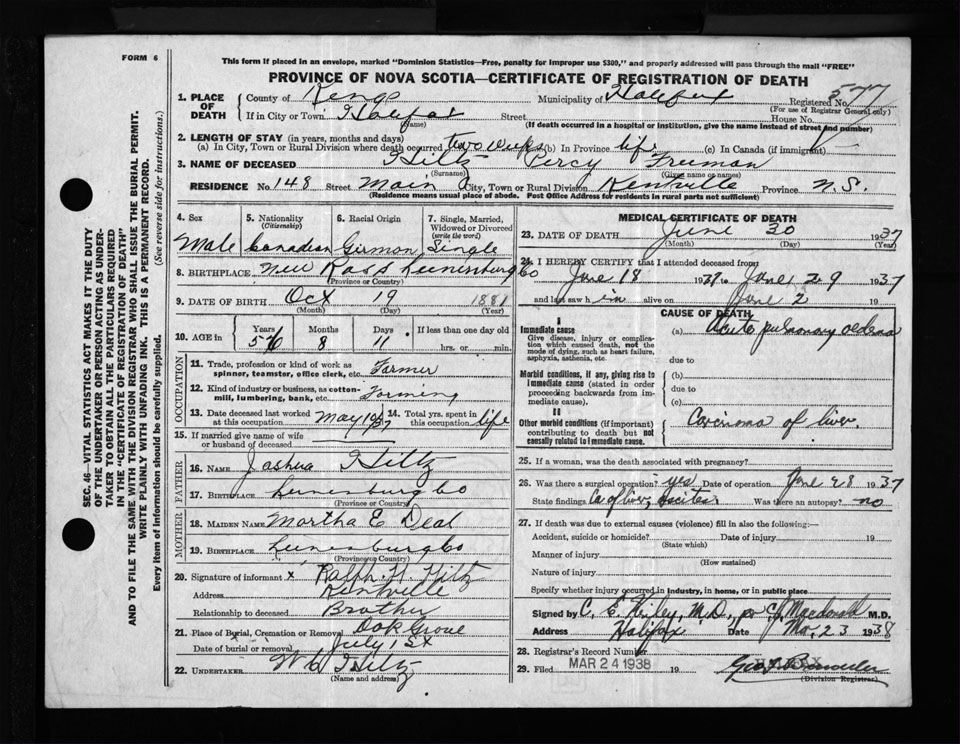 FORM 6
This form if placed in an envelope, marked "Dominion Statistics—Free, penalty for improper use $300," and properly addressed will pass through the mail "FREE"
PROVINCE OF NOVA SCOTIA—CERTIFICATE OF REGISTRATION OF DEATH
SEC. 46—VITAL STATISTICS ACT MAKES IT THE DUTY
OF THE UNDERTAKER OR PERSON ACTING AS UNDER-
TAKER TO OBTAIN ALL THE PARTICULARS REQUIRED
IN THE "CERTIFICATE OF REGISTRATION OF DEATH"
AND TO FILE THE SAME WITH THE DIVISION REGISTRAR WHO SHALL ISSUE THE BURIAL PERMIT.
WRITE PLAINLY WITH UNFADING INK. THIS IS A PERMANENT RECORD.
Every item of information should be carefully supplied. (See reverse side for instructions.)
1. PLACE OF DEATH County of Kings Municipality of Halifax Registered No. 577
(For use of Registrar General only)
If in City or Town Halifax Street House No.
(Name) (If death occurred in a hospital or institution, give the name instead of street and number)
2. LENGTH OF STAY (in years, months and days)
(a) In City, Town or Rural Division where death occurred two weeks (b) In Province life (c) In Canada (if immigrant)
3. NAME OF DECEASED Hiltz Percy Freeman
(Surname) (Given name or names)
RESIDENCE No. 148 Street Main City, Town or Rural Division Kentville Province N.S.
(Residence means usual place of abode. Post Office Address for residents in rural parts not sufficient)
4. Sex Male
5. Nationality (Citizenship) Canadian
6. Racial Origin German
7. Single, Married, Widowed or Divorced (write the word) Single
8. BIRTHPLACE New Ross Lunenburg Co
(Province or Country)
9. DATE OF BIRTH Oct 19 1881
(Month) (Day) (Year)
10. AGE in Years Months 8 Days 11 If less than one day old hrs. or min.
OCCUPATION
11. Trade, profession or kind of work as spinner, teamster, office clerk, etc. Farmer
12. Kind of industry or business, as cotton-mill, lumbering, bank, etc. Farming
13. Date deceased last worked at this occupation May 1937 14. Total yrs. spent in this occupation life
15. If married give name of wife or husband of deceased
FATHER
16. Name Joshua Hiltz
17. Birthplace Lunenburg Co
(Province or Country)
MOTHER
18. MAIDEN NAME Martha E Deal
19. BIRTHPLACE Lunenburg Co
(Province or Country)
20. Signature of informant x Ralph H. Hiltz
Address Kentville
Relationship to deceased Brother
21. Place of Burial, Cremation or Removal Oak Grove
Date of burial or removal July 1st
22. UNDERTAKER W C Hiltz
(Name and address)
MEDICAL CERTIFICATE OF DEATH
23. DATE OF DEATH June 30 1937
(Month) (Day) (Year)
24. I HEREBY CERTIFY that I attended deceased from:
June 18 1937 to June 29 1937
and last saw him alive on June 2 19
CAUSE OF DEATH
I
Immediate cause
Give disease, injury or complica-
tion which caused death, not the
mode of dying, such as heart failure,
asphyxia, asthenia, etc.
(a) Acute pulmonary oedema
due to
Morbid conditions, if any, giving rise to
immediate cause (stated in order
proceeding backwards from im-
mediate cause).
(b)
due to
(c)
II
Other morbid conditions (if important)
contributing to death but not
causally related to immediate cause.
Carcinoma of liver
25. If a woman, was the death associated with pregnancy?
26. Was there a surgical operation? yes Date of operation June 28 1937
State findings Ca of liver, Ascites Was there an autopsy? no
27. If death was due to external causes (violence) fill in also the following:—
Accident, suicide or homicide? Date of injury 19
(State which)
Manner of injury
(How sustained)
Nature of injury
Specify whether injury occurred in industry, in home, or in public place
Signed by C. E. M.D., per C J Macdonald M.D.
Address Halifax Date Mar. 23 1938
28. Registrar's Record Number
29. Filed MAR 24 1938 19
(Division Registrar)